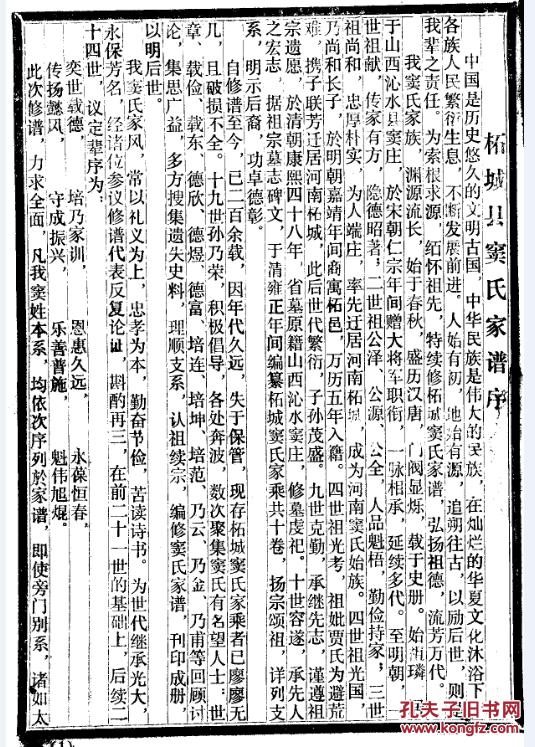 柘城县窦氏家谱序
中国是历史悠久的文明古国，中华民族是伟大的民族，在灿烂的华夏文化沐浴下
各族人民繁衍生息，不断发展前进。人始有初，地始有源，追朔往古，以励后世，则是
我辈之责任。为索根求源，缅怀祖先，特续修柘城窦氏家谱，弘扬祖德，流芳万代。
我窦氏家族，渊源流长，始于春秋，盛历汉唐，门阀显烁，载于史册。始祖璘
于山西沁水县窦庄，於宋朝仁宗年间赠大将军职衔，一脉相承，延续多代。至明朝，
世祖献，传家有方，隐德昭著；二世祖公泽、公源、公全，人品魁梧，勤俭持家；三世
祖尚和，忠厚朴实，为人端庄，率先迁居河南柘城，成为河南窦氏始族。四世祖光国，
乃尚和长子，於明朝嘉靖年间商寓柘邑，万历五年入籍。四世祖光考，祖妣贾氏为避荒
难，携子联芳迁居河南柘城，此后世代繁衍，子孙茂盛。九世克勤，承继先志，谨遵祖
宗遗愿，於清朝康熙四十八年，省墓原籍山西沁水窦庄，修墓虔祀。十世容邃，承先人
之宏志，据祖宗墓志碑文，于清雍正年间编纂柘城窦氏家乘共十卷，扬宗颂祖，详列支
系，明示后裔，功卓德彰。
自修谱至今，已二百余载，因年代久远，失于保管，现存柘城窦氏家乘者已廖廖无
几，且破损不全。十九世孙乃荣，积极倡导，各处奔波，数次聚集窦氏有名望人士：世
章、载俭、载东、德欣、德煜、德富、培连、培坤、培范、乃云、乃金、乃甫等回顾讨
论，集思广益，多方搜集遗失史料，理顺支系，认祖续宗，编修窦氏家谱，刊印成册，
以明后世。
我窦氏家风，常以礼义为上，忠孝为本，勤奋节俭，苦读诗书。为世代继承光大，
永保芳名，经诸位参议修谱代表反复论证，斟酌再三，在前二十一世的基础上，后续二
十四世，议定辈序为：
奕世载德，培乃家训，恩惠久远，永葆恒春，
传扬懿风，守成振兴，乐善普施，魁伟旭焜。
此次修谱，力求全面，凡我窦姓本系，均依次序列於家谱，即使旁门别系，诸如太
(1)
孔夫子旧书网
www.kongfz.com